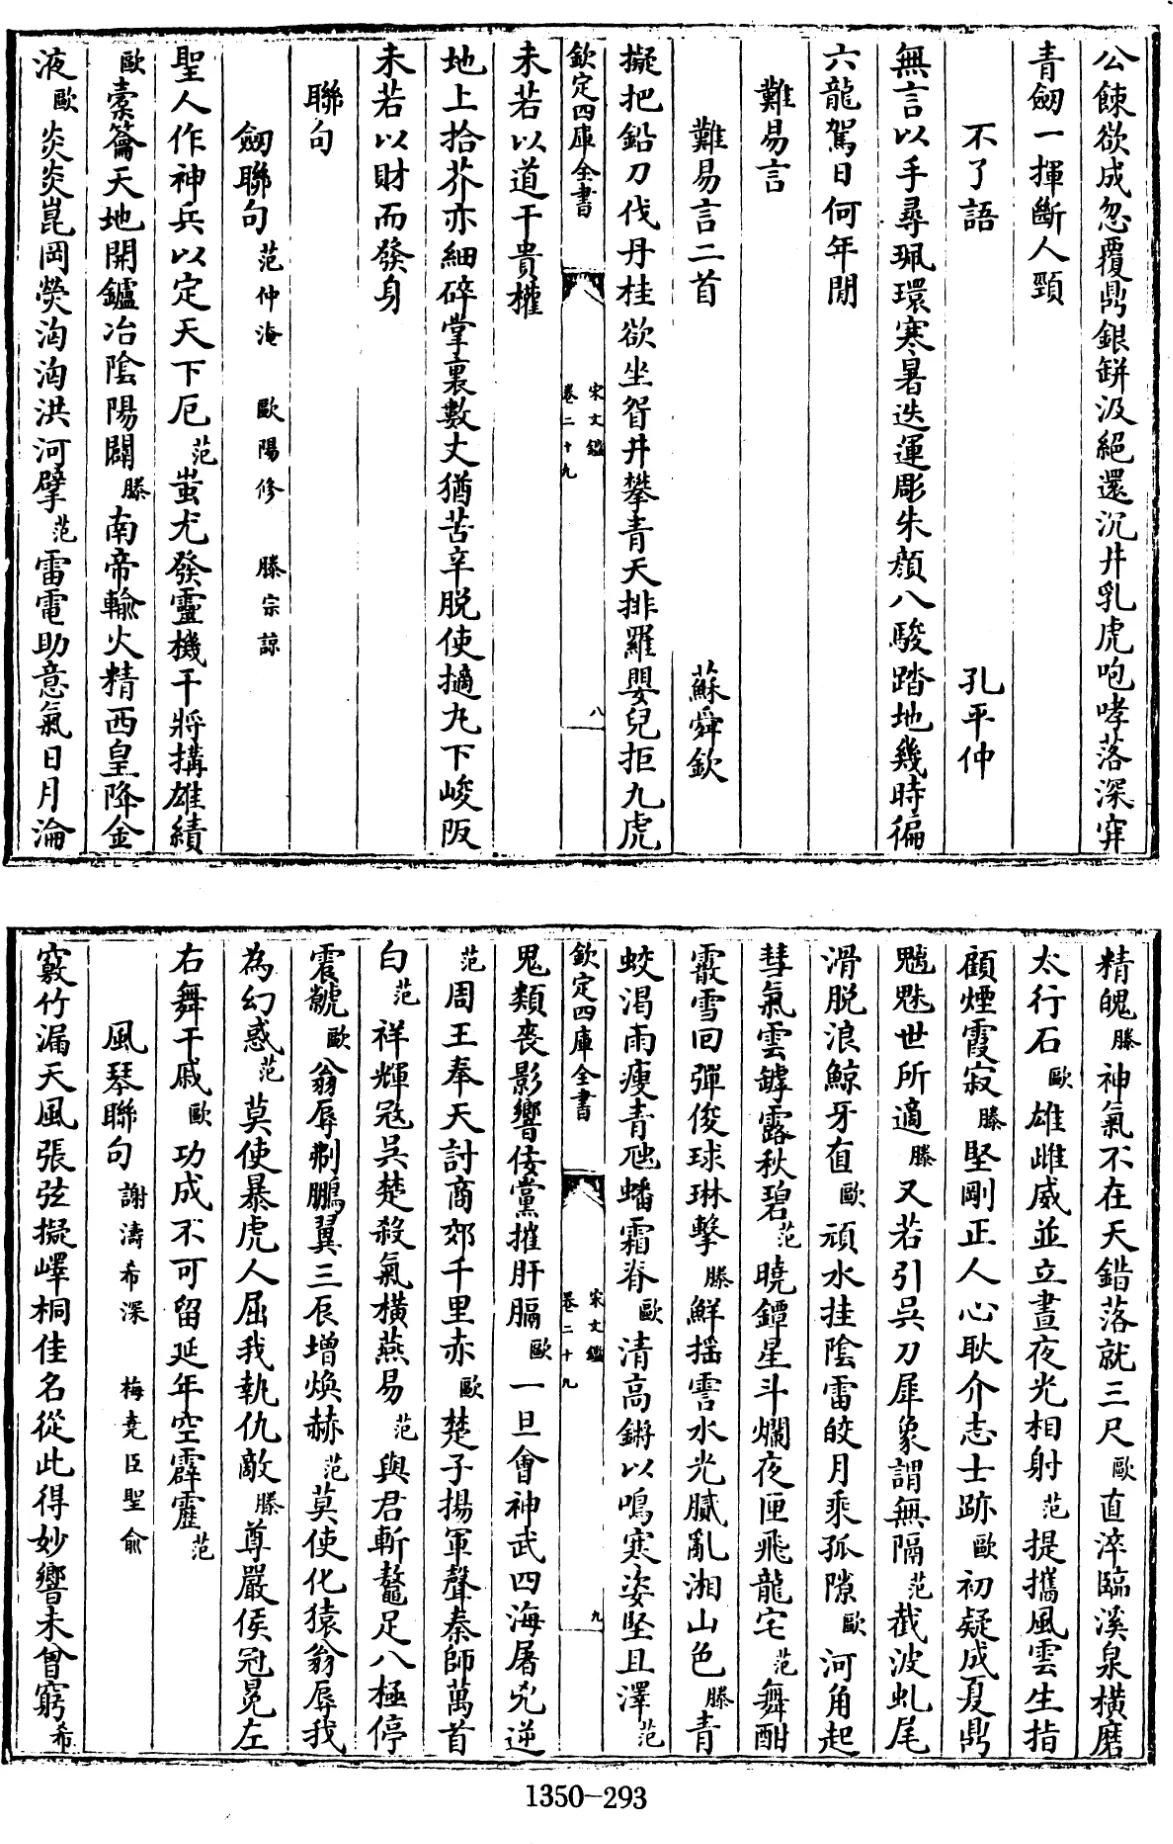 公餗欲成忽覆鼎銀缾汲絕還沉井乳虎咆哮落深穽
青劒一揮斷人頸
不了語 孔平仲
無言以手尋珮環寒暑迭運彫朱顔八駿踏地幾時徧
六龍駕日何年閒
難易言
難易言二首 蘇舜欽
擬把鉛刀伐丹桂欲坐眢井攀青天排羅嬰兒拒九虎
欽定四庫全書 宋文鑑 卷二十九 八
未若以道干貴權
地上拾芥亦細碎掌裏數丈猶苦辛脱使擿丸下峻阪
未若以財而發身
聯句
劒聯句 范仲淹 歐陽修 滕宗諒
聖人作神兵以定天下厄范蚩尤發靈機干將搆雄績
歐橐籥天地開鑪冶陰陽闢滕南帝輸火精西皇降金
液歐炎炎崑岡熒洶洶洪河擘范雷電助意氣日月淪
精魄滕神氣不在天錯落就三尺歐直淬臨溪泉横磨
太行石歐雄雌威並立晝夜光相射范提攜風雲生指
顧煙霞寂滕堅剛正人心耿介志士跡歐初疑成夏鼎
魑魅世所適滕又若引吳刀犀象謂無隔范截波虬尾
滑脱浪鯨牙直歐頑水挂陰雷皎月乘孤隙歐河角起
彗氣雲罅露秋碧范曉鐔星斗爛夜匣飛龍宅范舞酣
霰雪回彈俊球琳擊滕鮮搖霅水光膩亂湘山色滕青
蛟渇雨瘦青虺蟠霜脊歐清高鏘以鳴寒姿堅且澤范
欽定四庫全書 宋文鑑 卷二十九 九
鬼類喪影響佞黨摧肝膈歐一旦會神武四海屠兇逆
范周王奉天討商郊千里赤歐楚子揚軍聲秦師萬首
白范祥輝冦吳楚殺氣横燕易范與君斬鼇足八極停
震虩歐翁辱剸鵬翼三辰增煥赫范莫使化猿翁辱我
為幻惑范莫使暴虎人屈我執仇敵滕尊嚴侯冠冕左
右舞干戚歐功成不可留延年空霹靂范
風琴聯句 謝濤希深 梅堯臣聖俞
竅竹漏天風張弦擬嶧桐佳名從此得妙響未曾窮希
1350-293